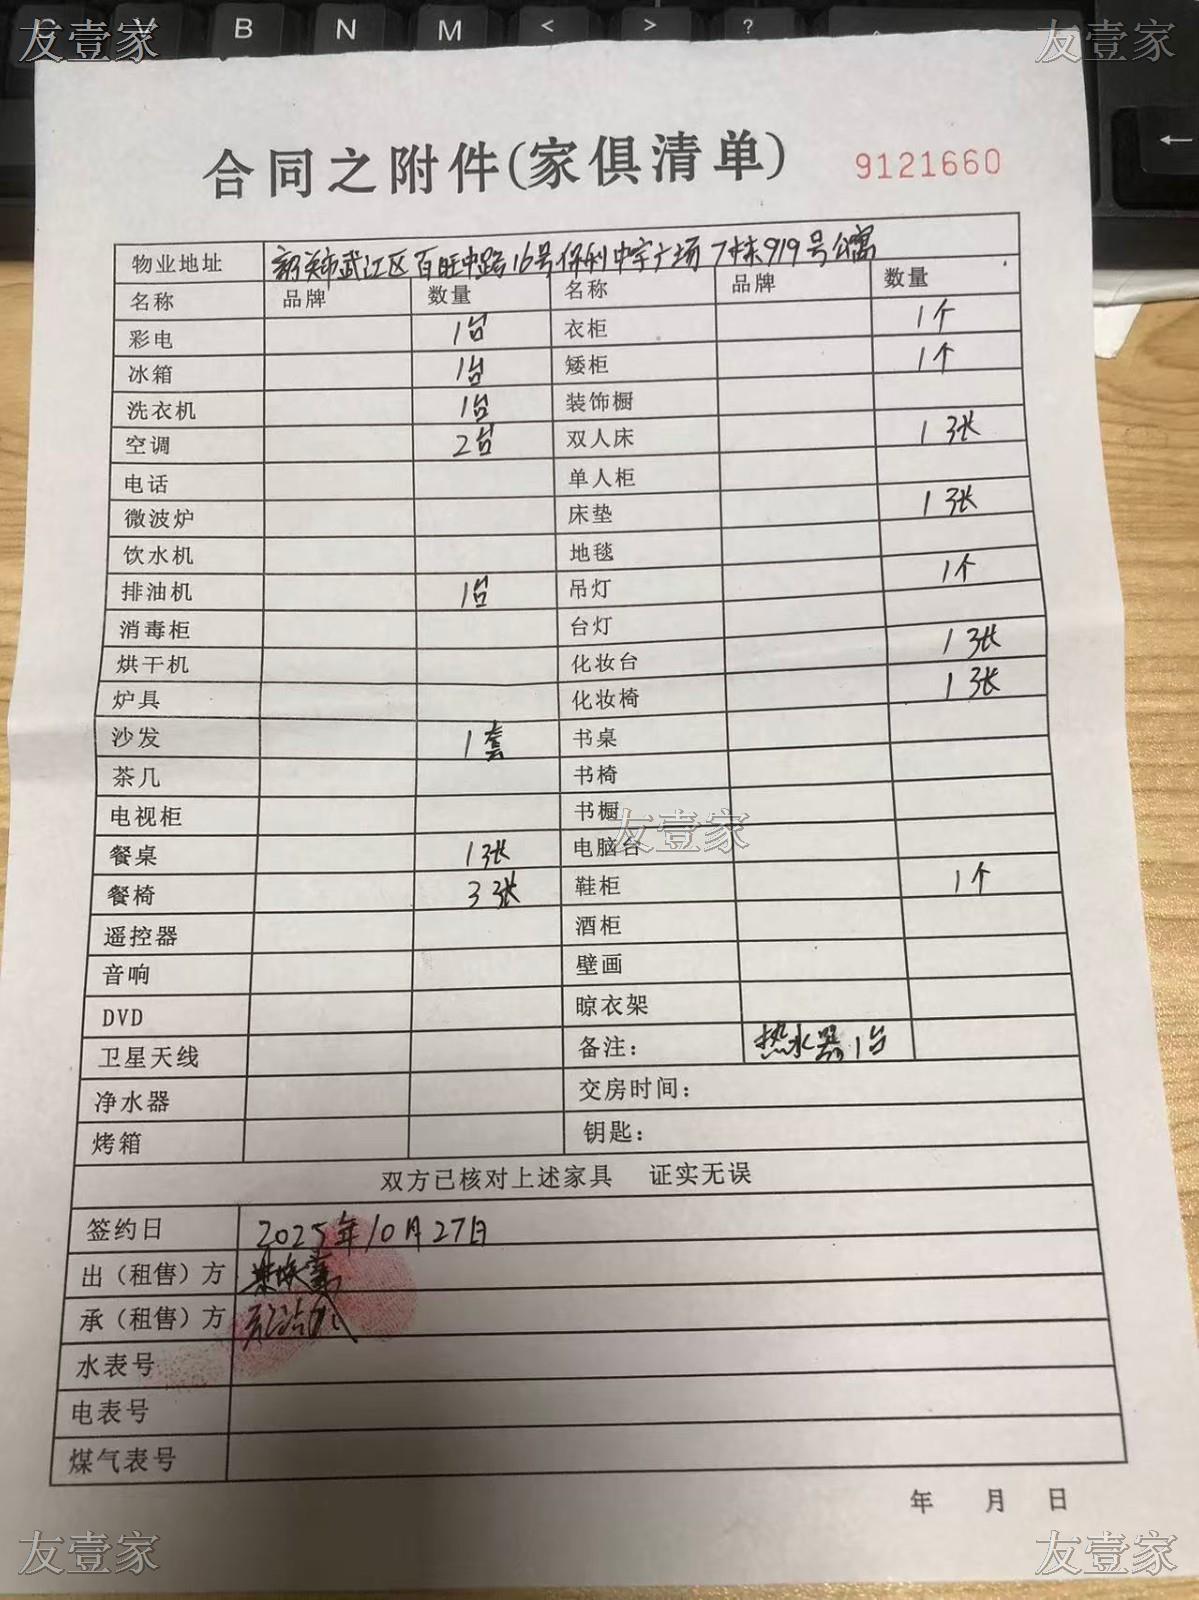 C V B N M < > ?
友壹家 友壹家
←
合同之附件(家俱清单) 9121660
物业地址 韶关市武江区百旺中路16号保利中宇广场7栋919号公寓
名称 品牌 数量 名称 品牌 数量
彩电 1台 衣柜 1个
冰箱 1台 矮柜 1个
洗衣机 1台 装饰橱
空调 2台 双人床 1张
电话 单人柜
微波炉 床垫 1张
饮水机 地毯
排油机 1台 吊灯 1个
消毒柜 台灯
烘干机 化妆台 1张
炉具 化妆椅 1张
沙发 1套 书桌
茶几 书椅
电视柜 书橱
友壹家
餐桌 1张 电脑台
餐椅 3张 鞋柜 1个
遥控器 酒柜
音响 壁画
DVD 晾衣架
卫星天线 备注： 热水器1台
净水器 交房时间：
烤箱 钥匙：
双方已核对上述家具 证实无误
签约日 2025年10月27日
出（租售）方
承（租售）方
水表号
电表号
煤气表号
年 月 日
友壹家 友壹家